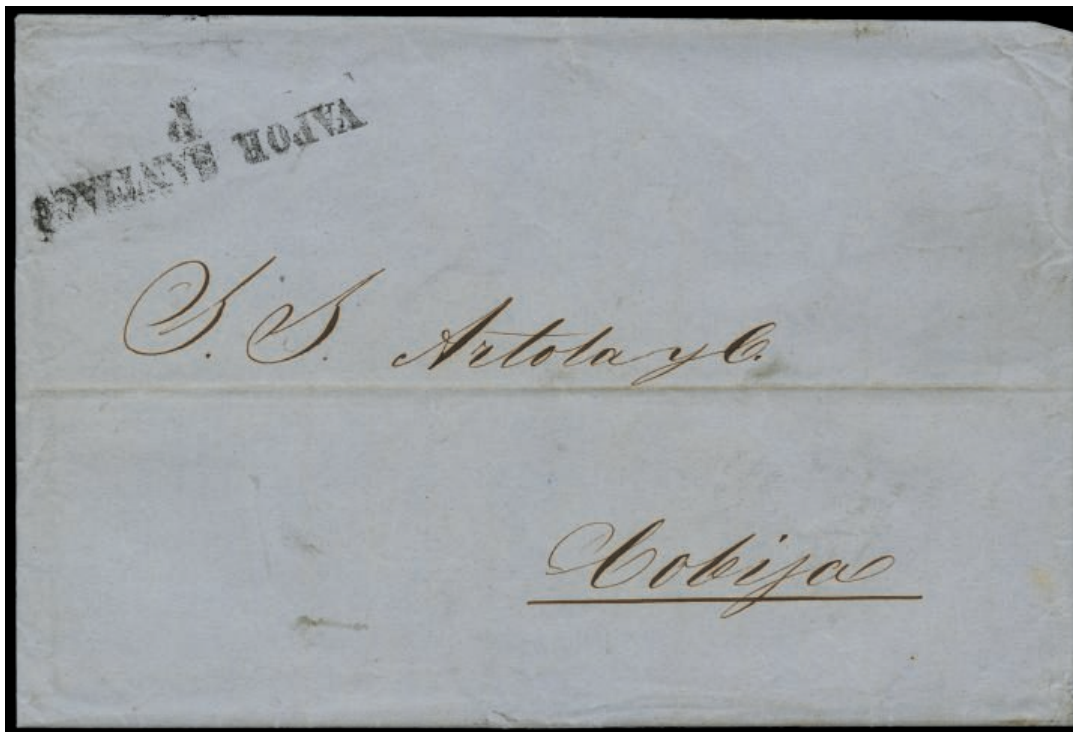 VAPOR SANTIAGO
P
S. S. Artola y C.
Cobija